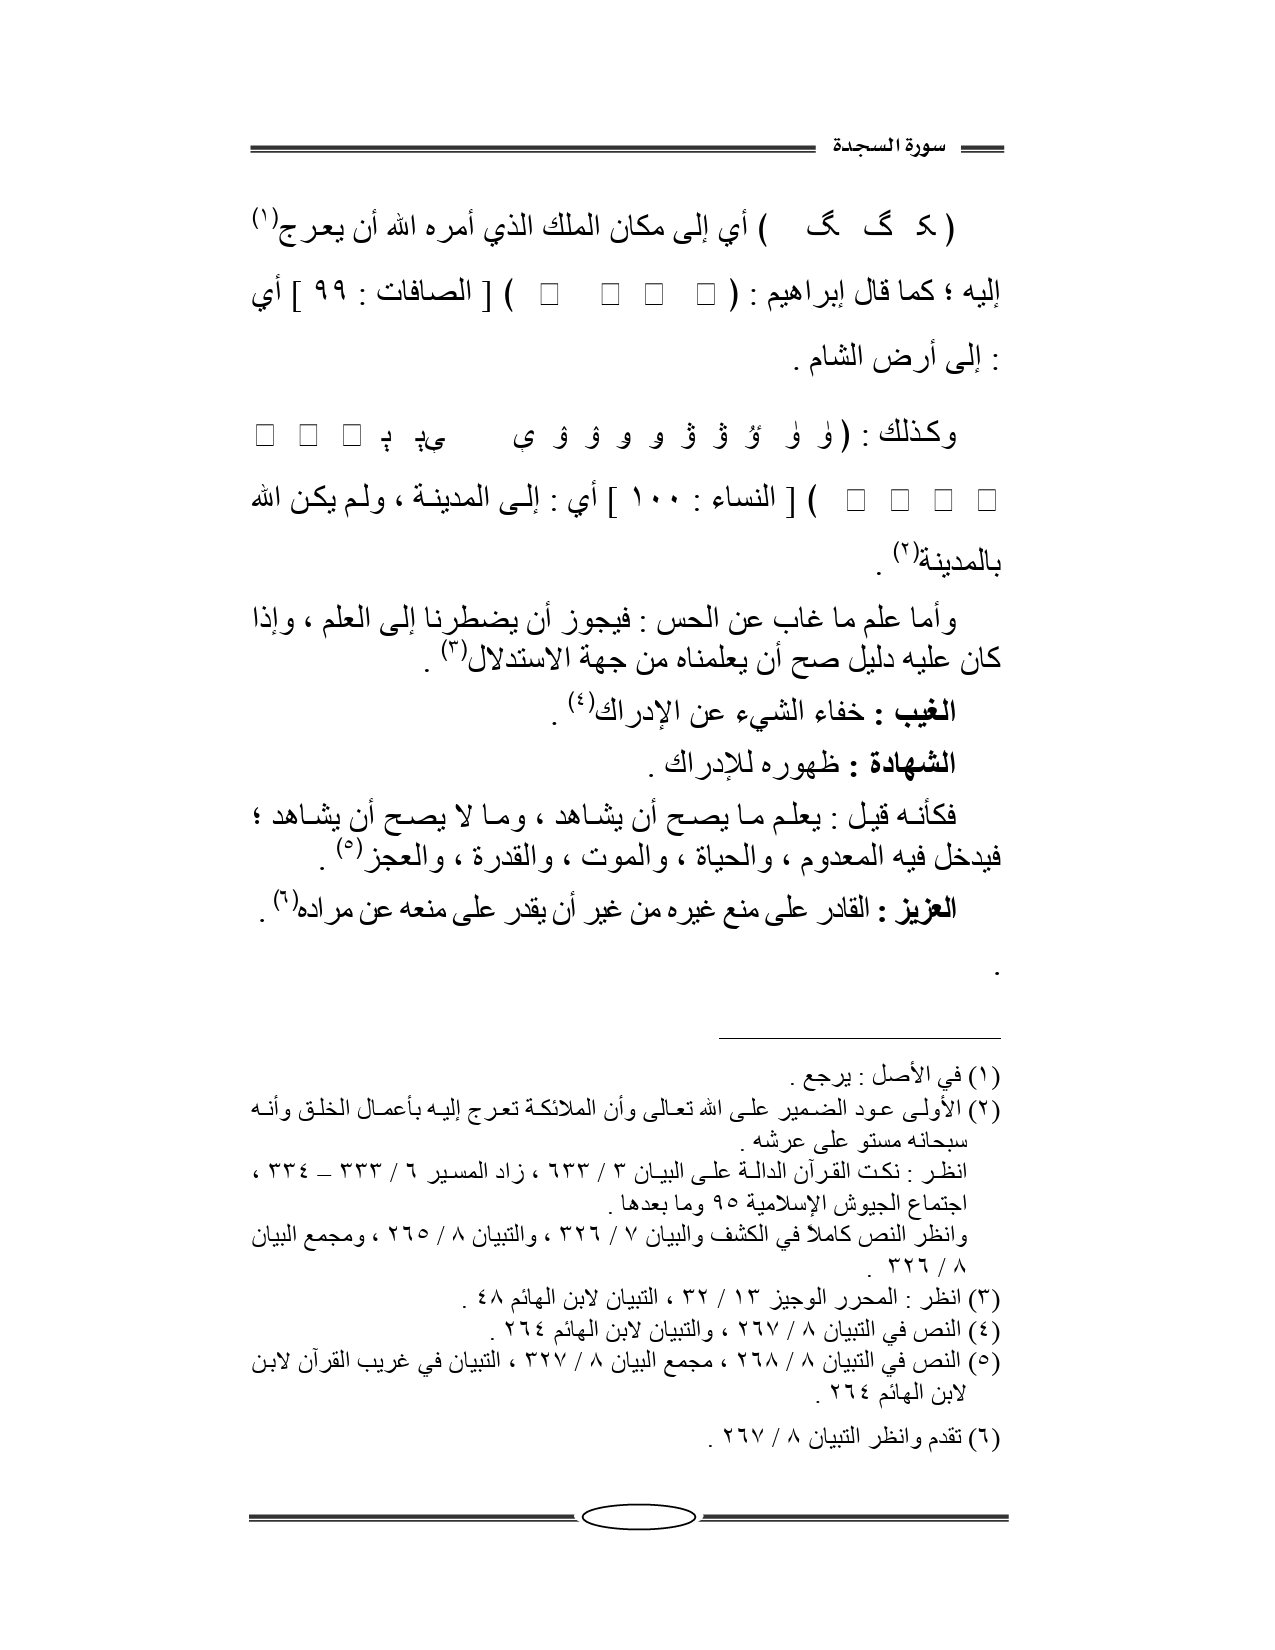 سورة السجدة
( ﮐ ﮓ ﮕ ) أي إلى مكان الملك الذي أمره الله أن يعرج(١)
إليه ؛ كما قال إبراهيم : ( □ □ □ □ ) [ الصافات : ٩٩ ] أي
: إلى أرض الشام .
وكذلك : ( ﯛ ﯜ ﯝ ﯞ ﯟ ﯠ ﯡ ﯢ ﯣ ﯤ ﯥ ﯦ ﯧ □ □ □
□ □ □ □ ) [ النساء : ١٠٠ ] أي : إلى المدينة ، ولم يكن الله
بالمدينة(٢) .
وأما علم ما غاب عن الحس : فيجوز أن يضطرنا إلى العلم ، وإذا
كان عليه دليل صح أن يعلمناه من جهة الاستدلال(٣) .
الغيب : خفاء الشيء عن الإدراك(٤) .
الشهادة : ظهوره للإدراك .
فكأنه قيل : يعلم ما يصح أن يشاهد ، وما لا يصح أن يشاهد ؛
فيدخل فيه المعدوم ، والحياة ، والموت ، والقدرة ، والعجز(٥) .
العزيز : القادر على منع غيره من غير أن يقدر على منعه عن مراده(٦) .
.
(١) في الأصل : يرجع .
(٢) الأولى عود الضمير على الله تعالى وأن الملائكة تعرج إليه بأعمال الخلق وأنه
سبحانه مستو على عرشه .
انظر : نكت القرآن الدالة على البيان ٣ / ٦٣٣ ، زاد المسير ٦ / ٣٣٣ – ٣٣٤ ،
اجتماع الجيوش الإسلامية ٩٥ وما بعدها .
وانظر النص كاملاً في الكشف والبيان ٧ / ٣٢٦ ، والتبيان ٨ / ٢٦٥ ، ومجمع البيان
٨ / ٣٢٦ .
(٣) انظر : المحرر الوجيز ١٣ / ٣٢ ، التبيان لابن الهائم ٤٨ .
(٤) النص في التبيان ٨ / ٢٦٧ ، والتبيان لابن الهائم ٢٦٤ .
(٥) النص في التبيان ٨ / ٢٦٨ ، مجمع البيان ٨ / ٣٢٧ ، التبيان في غريب القرآن لابن
لابن الهائم ٢٦٤ .
(٦) تقدم وانظر التبيان ٨ / ٢٦٧ .